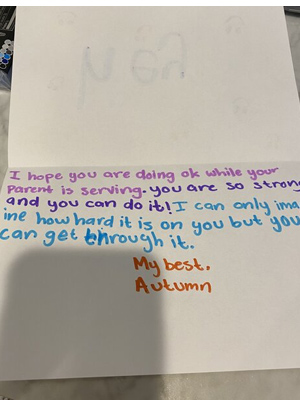 I hope you are doing ok while your
parent is serving. you are so strong
and you can do it! I can only ima
ine how hard it is on you but you
can get through it.
My best.
Autumn